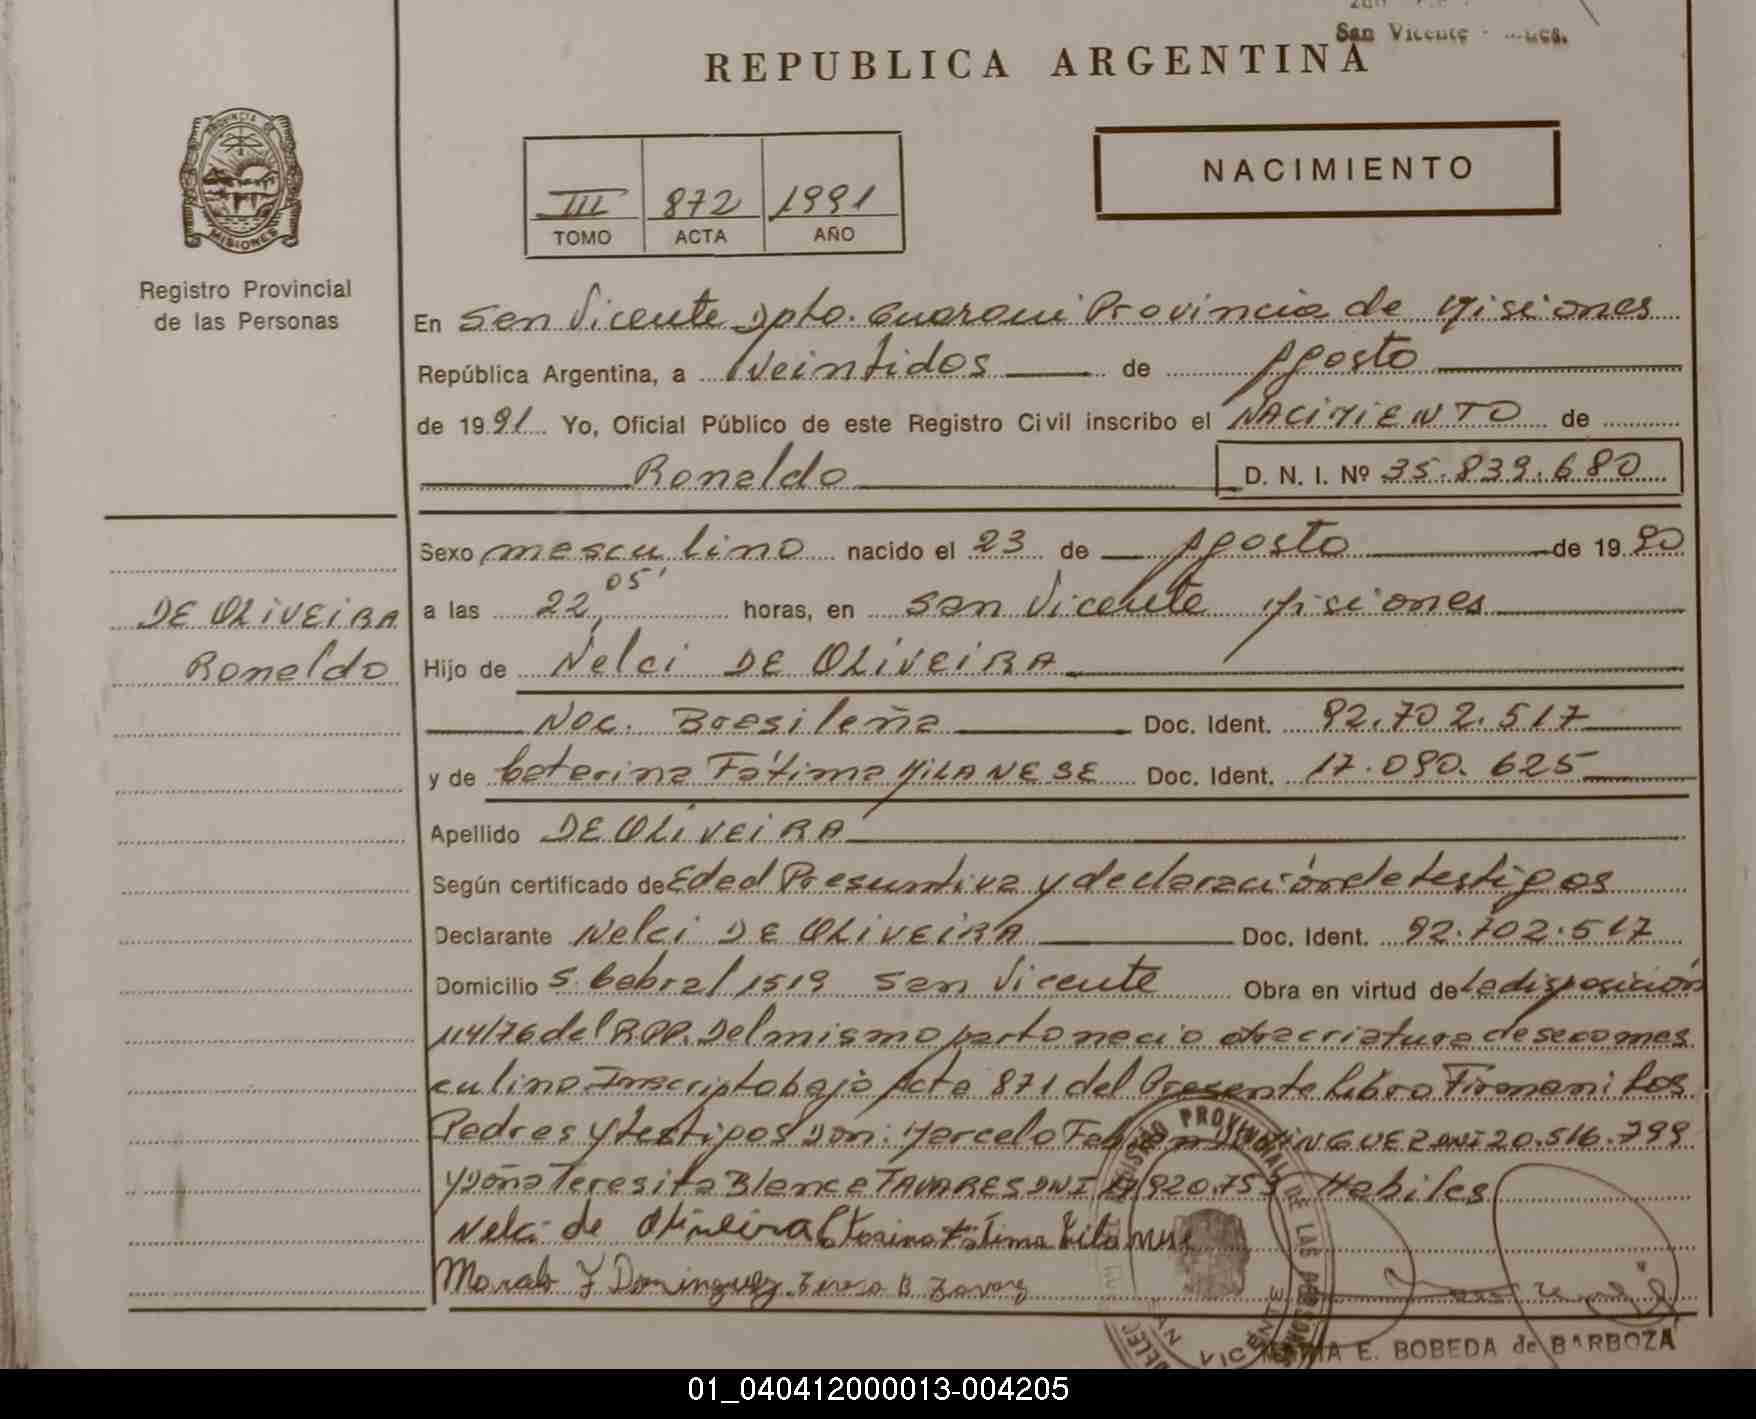 San Vicente
REPUBLICA ARGENTINA
PROVINCIA DE
MISIONES
NACIMIENTO
III 872 1991
TOMO ACTA AÑO
Registro Provincial
de las Personas
En San Vicente Dpto. Guarani Provincia de Misiones
República Argentina, a Veintidos de Agosto
de 1991 Yo, Oficial Público de este Registro Civil inscribo el NACIMIENTO de
Ronaldo D. N. I. Nº 35.839.680
Sexo masculino nacido el 23 de Agosto de 1990
DE OLIVEIRA
Ronaldo
a las 22,05' horas, en San Vicente Misiones
Hijo de Nelci DE OLIVEIRA
Nac. Brasileña Doc. Ident. 92.702.517
y de Caterina Fátima MILANESE Doc. Ident. 17.090.625
Apellido DE OLIVEIRA
Según certificado de Edad Presuntiva y declaración de testigos
Declarante Nelci DE OLIVEIRA Doc. Ident. 92.702.517
Domicilio S. Cabral 1519 San Vicente Obra en virtud de La disposición
114/76 del R.P.P. Del mismo parto nacio otra criatura de sexo mas
culino Inscripto bajo Acta 871 del Presente Libro Firman Los
Padres y testigos Don: Marcelo DNI 20.516.799
y Doña Teresita Blanca TAVARES DNI Habiles
Nelci de Oliveira Catarina Fátima Milanese
Dominguez Teresa B Tavarez
REGISTRO PROVINCIAL DE LAS PERSONAS
SAN VICENTE
MARIA E. BOBEDA de BARBOZA
01_040412000013-004205